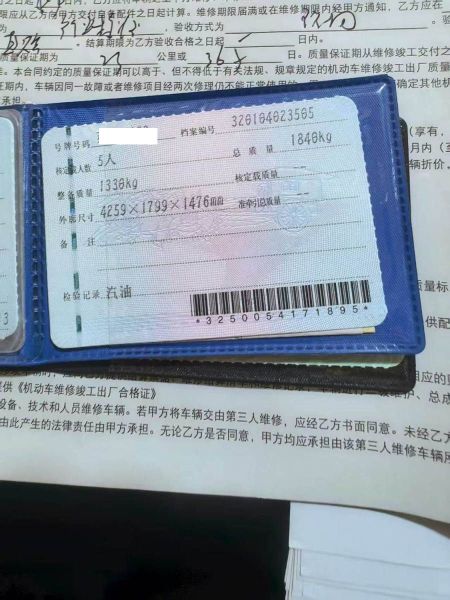 日内，乙方应将车辆
之日起计算。维修期限届满或在维修期限内经甲方通知，乙方应在
，验收方式为
，验
。结算期限为乙方验收合格之日起
日内。
质量保证期为
公里或
日。质量保证期从维修竣工交付之
准。本合同约定的质量保证期可以高于、但不得低于有关法规、规章规定的机动车维修竣工出厂质量
证期内，车辆因同一故障或者维修项目经两次修理仍不能正常使用
确定其他机
承担。
号牌号码
档案编号 320104023505
核定载人数 5人
总质量 1840kg
整备质量 1330kg
核定载质量 --
外廓尺寸 4259×1799×1476mm
准牵引总质量 --
备注
检验记录 汽油
*3250054171895*
(享有，
月内（至
辆折价，
质量标
供配
相应的
提供《机动车维修竣工出厂合格证》
设备、技术和人员维修车辆。若甲方将车辆交由第三人维修，应经乙方书面同意。未经乙方
由此产生的法律责任由甲方承担。无论乙方是否同意，甲方均应承担由该第三人维修车辆